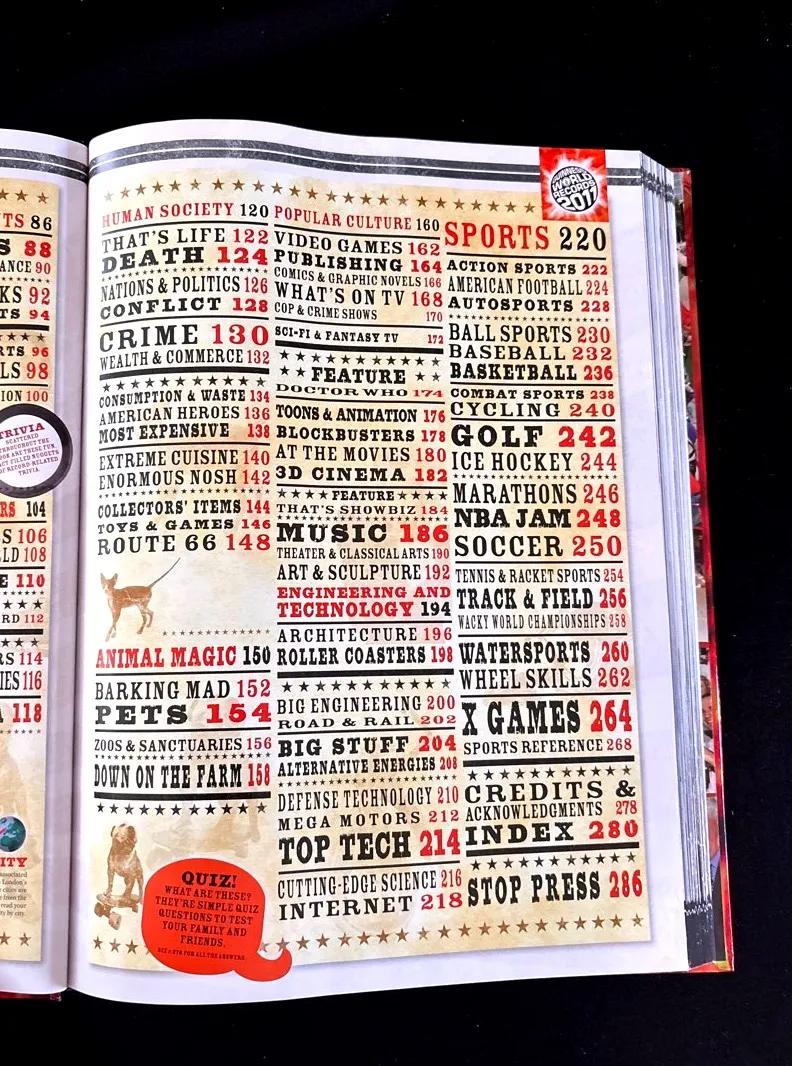 TS 86
S 88
ANCE 90
KS 92
TS 94
RTS 96
LS 98
ION 100
TRIVIA
SCATTERED
THROUGHOUT THE
BOOK ARE THESE FUN,
FACT-FILLED NUGGETS
OF RECORD-RELATED
TRIVIA.
RS 104
S 106
LD 108
E 110
RD 112
RS 114
IES 116
A 118
ITY
associated
London's
cities are
from the
read your
ty by city.
HUMAN SOCIETY 120
THAT'S LIFE 122
DEATH 124
NATIONS & POLITICS 126
CONFLICT 128
CRIME 130
WEALTH & COMMERCE 132
CONSUMPTION & WASTE 134
AMERICAN HEROES 136
MOST EXPENSIVE 138
EXTREME CUISINE 140
ENORMOUS NOSH 142
COLLECTORS' ITEMS 144
TOYS & GAMES 146
ROUTE 66 148
ANIMAL MAGIC 150
BARKING MAD 152
PETS 154
ZOOS & SANCTUARIES 156
DOWN ON THE FARM 158
QUIZ!
WHAT ARE THESE?
THEY'RE SIMPLE QUIZ
QUESTIONS TO TEST
YOUR FAMILY AND
FRIENDS.
SEE P.278 FOR ALL THE ANSWERS.
POPULAR CULTURE 160
VIDEO GAMES 162
PUBLISHING 164
COMICS & GRAPHIC NOVELS 166
WHAT'S ON TV 168
COP & CRIME SHOWS 170
SCI-FI & FANTASY TV 172
FEATURE
DOCTOR WHO 174
TOONS & ANIMATION 176
BLOCKBUSTERS 178
AT THE MOVIES 180
3D CINEMA 182
FEATURE
THAT'S SHOWBIZ 184
MUSIC 186
THEATER & CLASSICAL ARTS 190
ART & SCULPTURE 192
ENGINEERING AND
TECHNOLOGY 194
ARCHITECTURE 196
ROLLER COASTERS 198
BIG ENGINEERING 200
ROAD & RAIL 202
BIG STUFF 204
ALTERNATIVE ENERGIES 208
DEFENSE TECHNOLOGY 210
MEGA MOTORS 212
TOP TECH 214
CUTTING-EDGE SCIENCE 216
INTERNET 218
GUINNESS
WORLD
RECORDS
2011
SPORTS 220
ACTION SPORTS 222
AMERICAN FOOTBALL 224
AUTOSPORTS 228
BALL SPORTS 230
BASEBALL 232
BASKETBALL 236
COMBAT SPORTS 238
CYCLING 240
GOLF 242
ICE HOCKEY 244
MARATHONS 246
NBA JAM 248
SOCCER 250
TENNIS & RACKET SPORTS 254
TRACK & FIELD 256
WACKY WORLD CHAMPIONSHIPS 258
WATERSPORTS 260
WHEEL SKILLS 262
X GAMES 264
SPORTS REFERENCE 268
CREDITS &
ACKNOWLEDGMENTS 278
INDEX 280
STOP PRESS 286